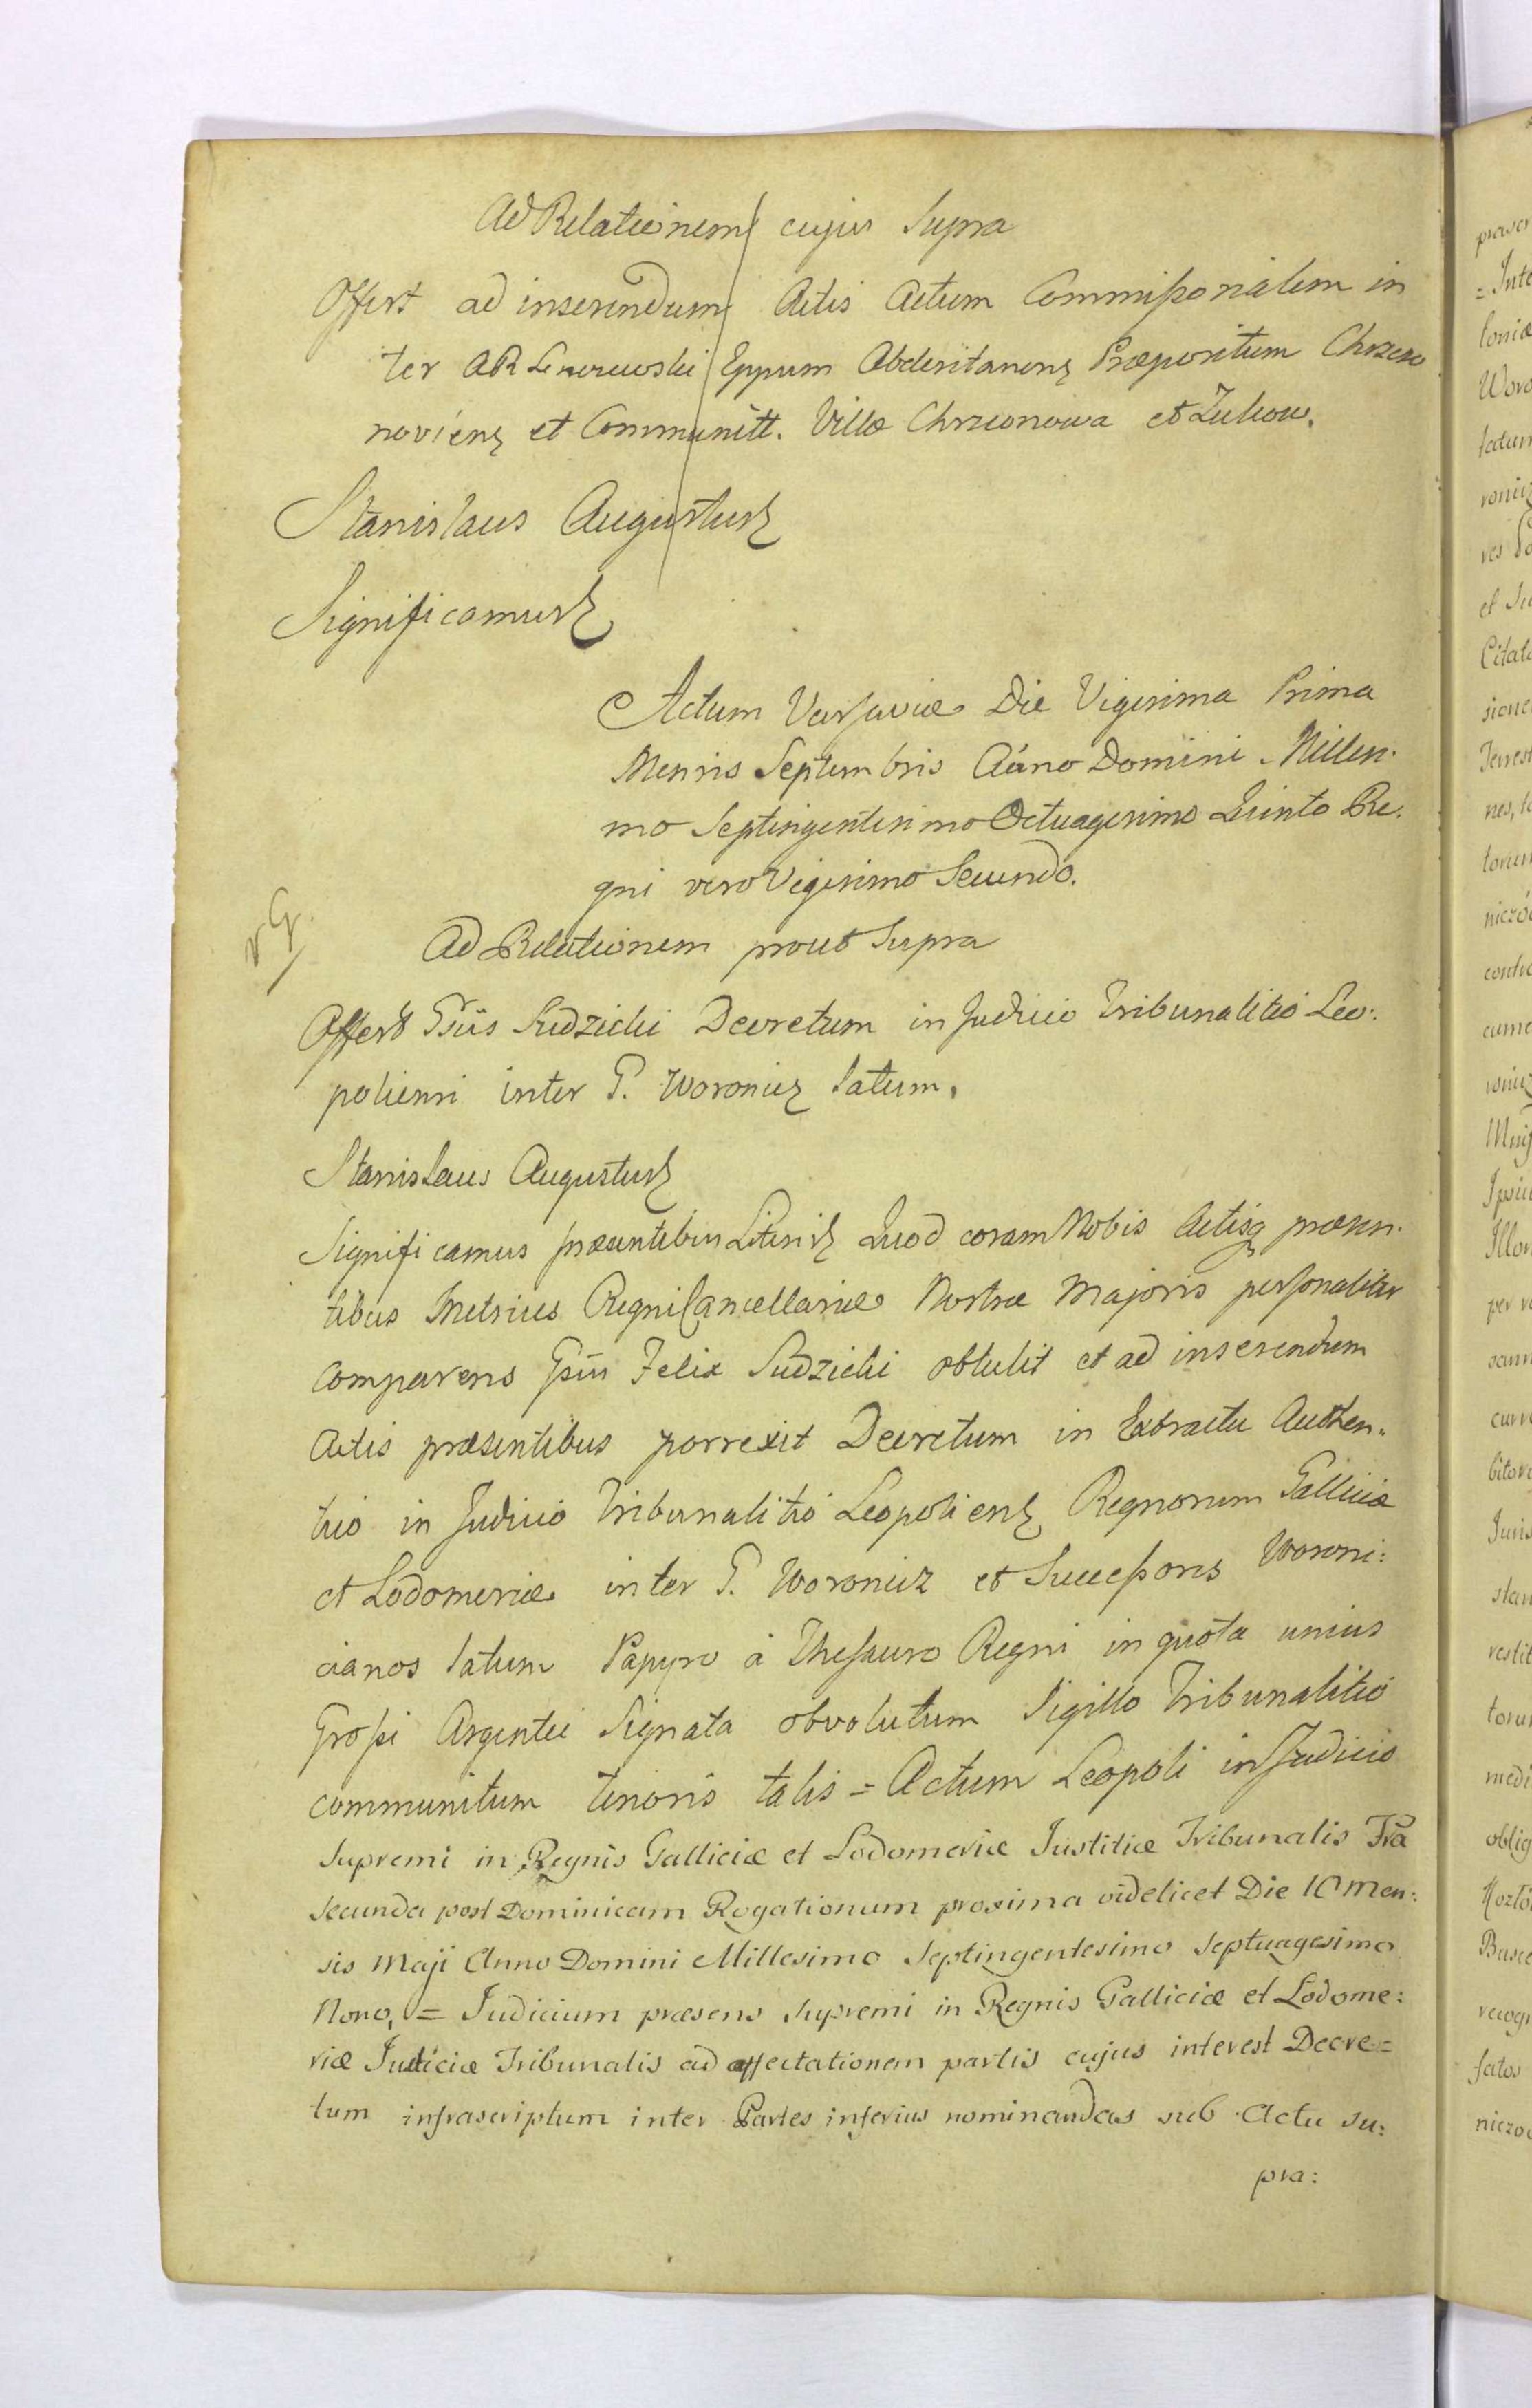 Ad Relationem cujus Supra
Offert ad inserendum Actis Actum Commissorialem in
ter AR Lenczewski Eppum Abderitanens Præpositum Chrzczo
noviens et Communitt. Villæ Chrzconowa et Zukow.
Stanislaus Augustus
Significamus
Actum Varsaviæ Die Vigesima Prima
Mensis Septembris Anno Domini Millesi-
mo Septingentesimo Octuagesimo Quinto Re-
gni vero Vigesimo Secundo.
Ad Relationem prout Supra
Offert Gsus Sudzicki Decretum in Judicio Tribunalitio Leo:
poliensi inter G. Woronicz latum.
Stanislaus Augustus
Significamus præsentibus Literis Quod coram Nobis Actisq præsen-
tibus Metrices Regni Cancellariæ Nostræ Majoris personaliter
comparens Gsus Felix Sudzicki obtulit et ad inserendum
Actis præsentibus porrexit Decretum in Extractu Authen-
tico in Judicio Tribunalitio Leopoliens Regnorum Galliciæ
et Lodomeriæ inter G. Woronicz et Successores Woroni:
cianos latum Papyro à Thesauro Regni in quota unius
Grossi Argentei Signata obvolutum Sigillo Tribunalitió
communitum tenoris talis = Actum Leopoli in Judicio
Supremi in Regnis Galliciæ et Lodomeriæ Justitiæ Tribunalis Fra
Secunda post Dominicam Rogationum proxima videlicet Die 10 Men:
sis Maji Anno Domini Millesimo Septingentesimo Septuagesimo
Nono, = Judicium præsens Supremi in Regnis Galliciæ et Lodome:
riæ Justiciæ Tribunalis ad affectationem partis cujus interest Decre=
tum infrascriptum inter Partes inferius nominandas sub Actu su:
pra: